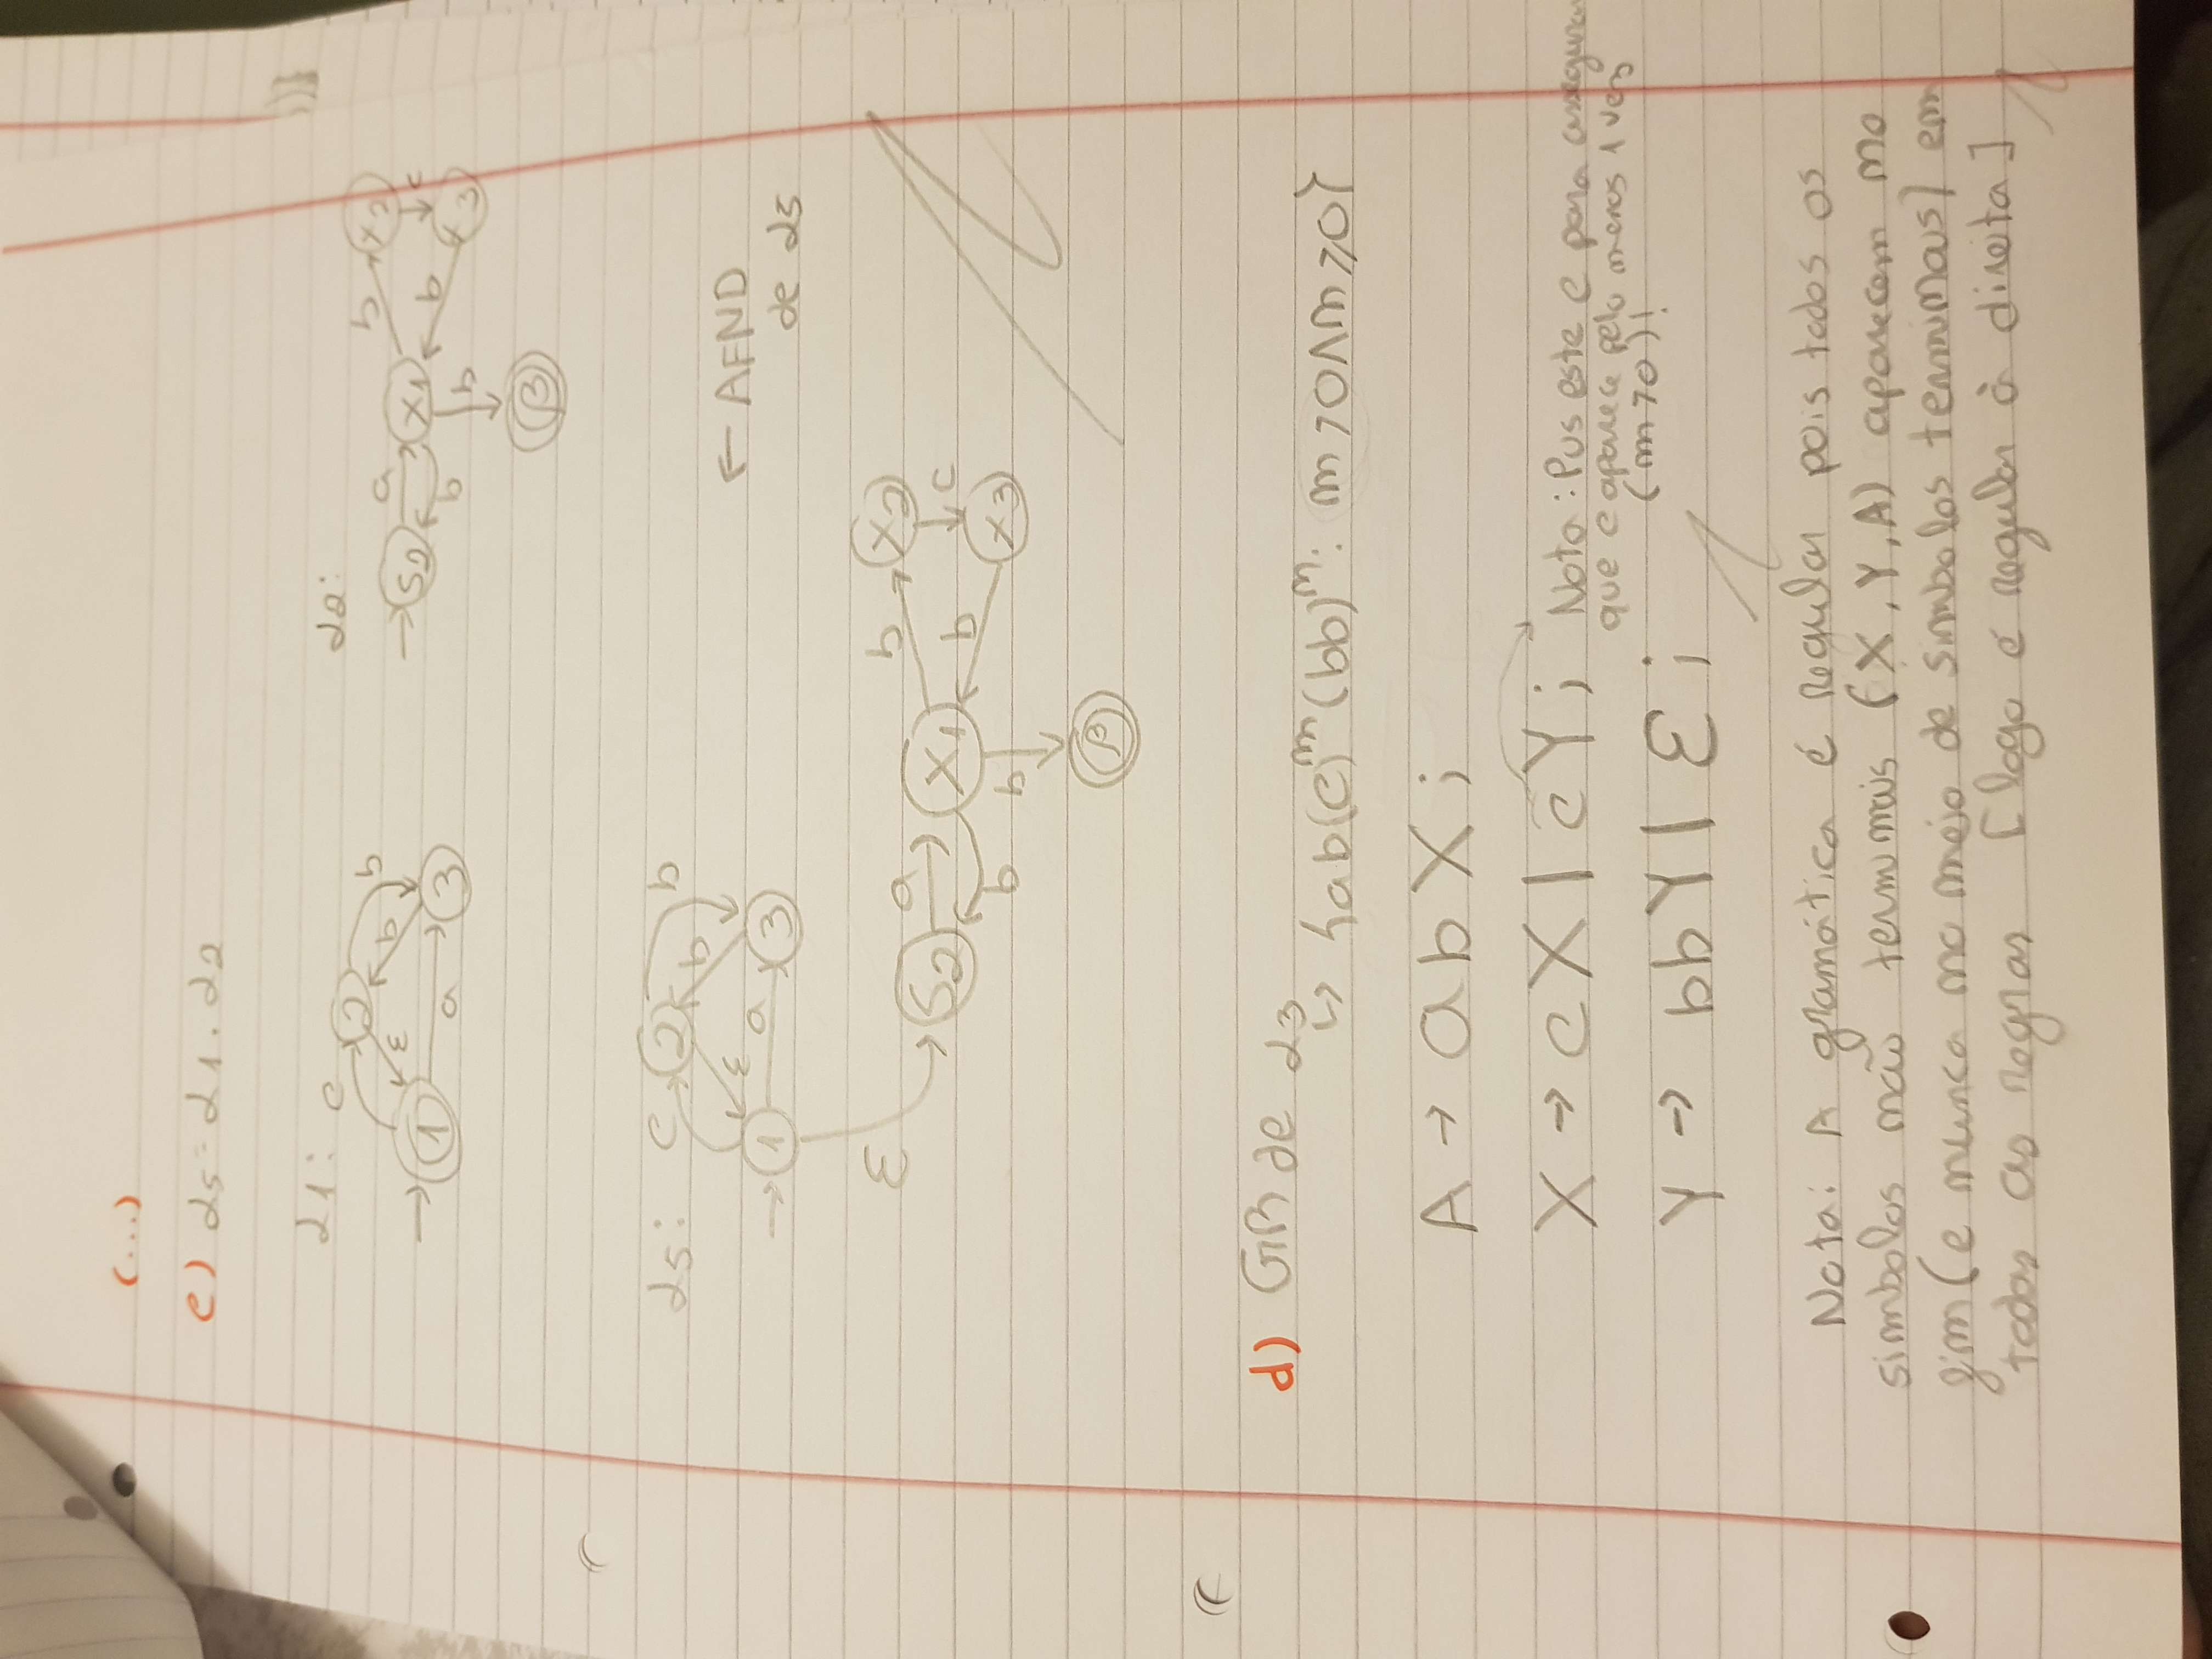 (...)
c) L5 = L1 . L2
L1:
c 2 b
ε b
1 a 3
L2:
S2 a X1 b X2
b b c
X3
b
β
L5:
c 2 b
ε b
1 a 3
← AFND
de L5
ε
S2 a X1 b X2
b b c
X3
b
β
d) GR de L3
↳ {ab(c)^n (bb)^m : n>0 ∧ m⩾0}
A → abX;
X → cX | cY; Nota: Pus este c para assegurar
que c aparece pelo menos 1 vez
(n>0)!
Y → bbY | ε;
Nota: A gramática é regular pois todos os
simbolos não terminais (X, Y, A) aparecem no
fim (e nunca no meio de simbolos terminais) em
todas as regras [logo é regular à direita]